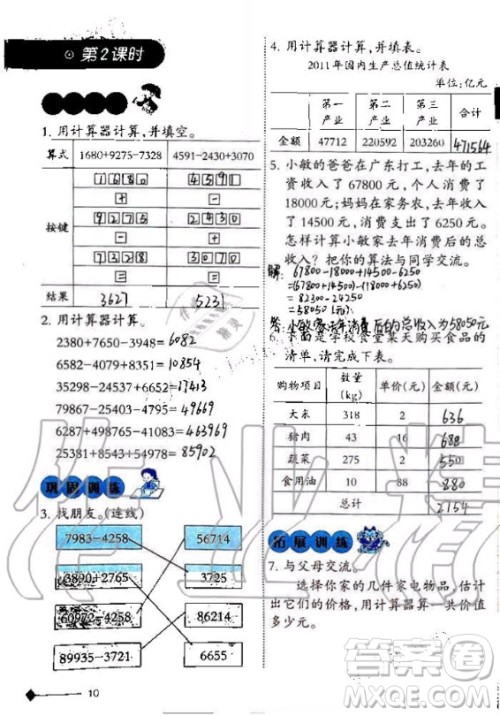 第2课时
1. 用计算器计算,并填空。
算式 1680+9275-7328 4591-2430+3070
按键
1 6 8 0 4 5 9 1
+ -
9 2 7 5 2 4 3 0
- +
7 3 2 8 3 0 7 0
= =
结果 3627 5231
2. 用计算器计算。
2380+7650-3948=6082
6582-4079+8351=10854
35298-24537+6652=17413
79867-25401-4797=49669
6287+498765-41083=463969
25381+8543+54978=88902
巩固训练
3. 找朋友。(连线)
7983-4258 56714
3890+2765 3725
60972-4258 86214
89935-3721 6655
10
4. 用计算器计算,并填表。
2011年国内生产总值统计表
单位:亿元
第一产业 第二产业 第三产业 合计
金额 47712 220592 203260 471564
5. 小敏的爸爸在广东打工,去年的工
资收入了 67800 元,个人消费了
18000元;妈妈在家务农,去年收入
了 14500 元,消费支出了 6250 元。
怎样计算小敏家去年消费后的总
收入?把你的算法与同学交流。
解: 67800-18000+14500-6250
=(67800+14500)-(18000+6250)
=82300-24250
=58050(元)
答:小敏家去年消费后的总收入为58050元
6. 下面是学校食堂某天购买食品的
清单,请完成下表。
购物项目 数量(kg) 单价(元) 金额(元)
大米 318 2 636
猪肉 43 16 688
蔬菜 275 2 550
食用油 10 88 880
总计 2154
拓展训练
7. 与父母交流。
选择你家的几件家电物品,估计
出它们的价格,用计算器算一共价值
多少元。
作业精灵
答案圈
MXQE.COM